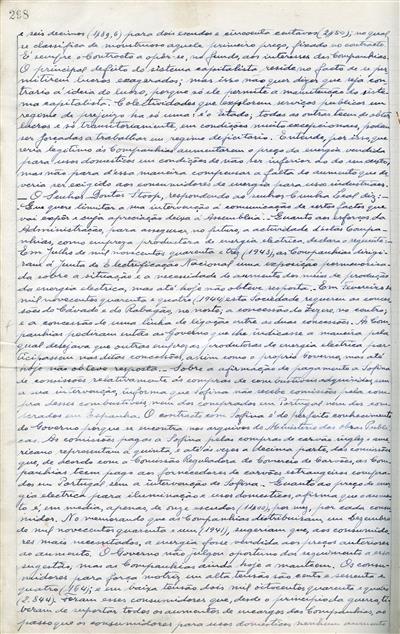 298
e seis decimos (489,6) para dois escudos e cincoenta centavos (2$50); no qual
se classifica de monstruoso aquele primeiro preço, fixado no contracto.
É sempre o Contracto a opôr-se, no fundo, aos interesses das Companhias.
O principal defeito do sistema capitalista reside no facto de se per-
mitirem lucros exagerados; mas isso não quer dizer que seja con-
trario á ideia do lucro, porque só ele permite a manutenção do siste-
ma capitalista. Colectividades que explorem serviços publicos em
regimen de prejuizo ha só uma: é o Estado; todas as outras teem de obter
lucros e só transitoriamente, em condições muito excepcionais, podem
ser forçadas a trabalhar em regimen deficitario. Entende, por isso, que
seria legitimo ás Companhias aumentarem o preço da energia vendida
para usos domesticos em condições de não ser inferior ao do seu custo,
mas não para d'essa maneira compensar a falta de aumento que de-
veria ser exigido aos consumidores de energia para usos industriaes.
O Senhor Doutor Stoop, respondendo ao Senhor Cunha Leal diz:
Que quere limitar a sua intervenção á comunicação de certos factos que
vai expôr e cuja apreciação deixa á Assembleia. Quanto aos esforços da
Administração, para assegurar, no futuro, a actividade d'estas Compa-
nhias, como empreza productora de energia electrica, declara o seguinte:
Em Julho de mil novecentos quarenta e trez (1943), as Companhias dirigi-
ram á Junta de Electrificação Nacional uma exposição pormenorisa-
da sobre a situação e a necessidade de aumento dos meios de produção
da energia electrica, mas até hoje não obteve resposta. Em Fevereiro de
mil novecentos quarenta e quatro (1944) esta Sociedade requereu as conces-
sões do Cávado e do Rabagão, no norte; a concessão do Zezere, no centro;
e a concessão de uma linha de ligação entre as duas concessões. As Com-
panhias pediram então ao Governo que lhe indicasse a maneira pela
qual desejava que outras emprezas productoras de energia electrica par-
ticipassem nas ditas concessões, assim como o proprio Governo, mas até
hoje não obteve resposta. Sobre a afirmação de pagamento a Sofina
de comissões relativamente ás compras de combustiveis adquiridos sem
a sua intervenção, informa que Sofina não recebe comissão pela com-
pra desses combustiveis, nem dos comprados em Portugal nem dos com-
prados em Espanha. O contracto com Sofina é do perfeito conhecimento
do Governo porque se encontra nos arquivos do Ministerio das Obras Publi-
cas. As comissões pagas a Sofina pelas compras de carvão inglez e ame-
ricano representam a quinta, e até ás vezes a decima parte, das comissões
que, de acordo com a Comissão Reguladora do Comercio de Carvões, as Com-
panhias teem pago aos fornecedores de carvões estrangeiros compra-
dos em Portugal sem a intervenção de Sofina. Quanto ao preço de ener-
gia electrica para iluminação e usos domesticos, afirma que o aumen-
to é, em media, apenas, de onze escudos (11$00), por mez, por cada consu-
midor. No memorando que as Companhias distribuiram em Dezembro
de mil novecentos quarenta e um (1941), sugeriram que, aos consumido-
res mais necessitados, a energia fosse vendida aos preços anteriores
ao aumento. O Governo não julgou oportuno dar seguimento a essa
sugestão, mas as Companhias ainda hoje a manteem. Os consu-
midores para força motriz em alta tensão são cento e sessenta e
quatro (164); e em baixa tensão dois mil oitocentos quarenta e quatro
(2.844). Foram esses consumidores que, desde o principio da guerra, ti-
veram de suportar todos os aumentos de encargos das Companhias, ao
passo que os consumidores para usos domesticos nenhum aumento